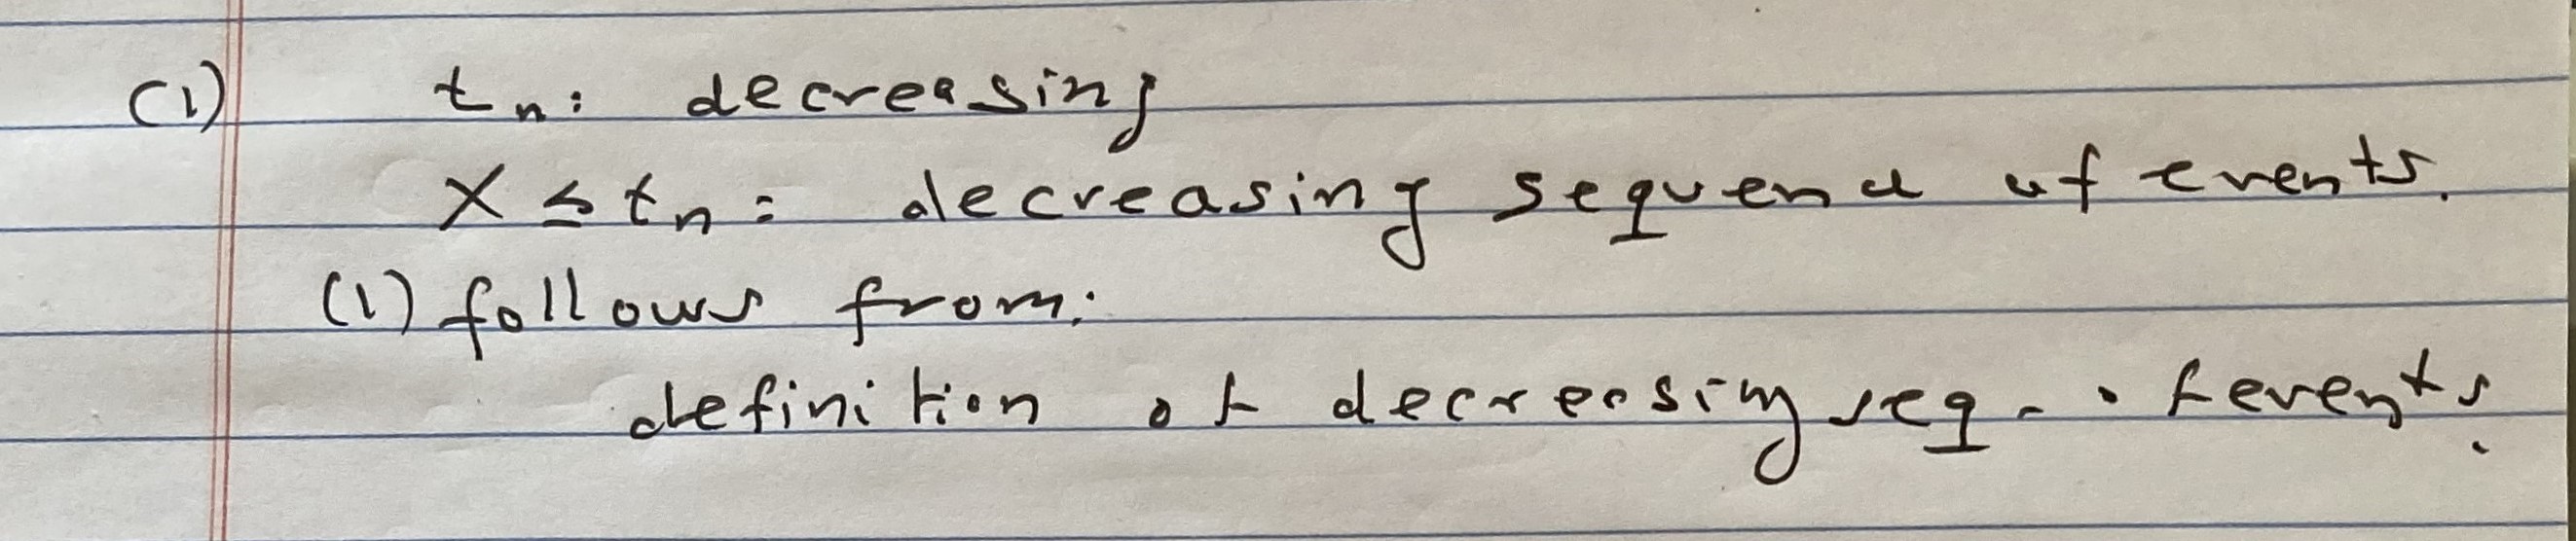 (1) tn: decreasing
X ≤ tn: decreasing sequence of events.
(1) follows from:
definition of decreasing seq. of events.